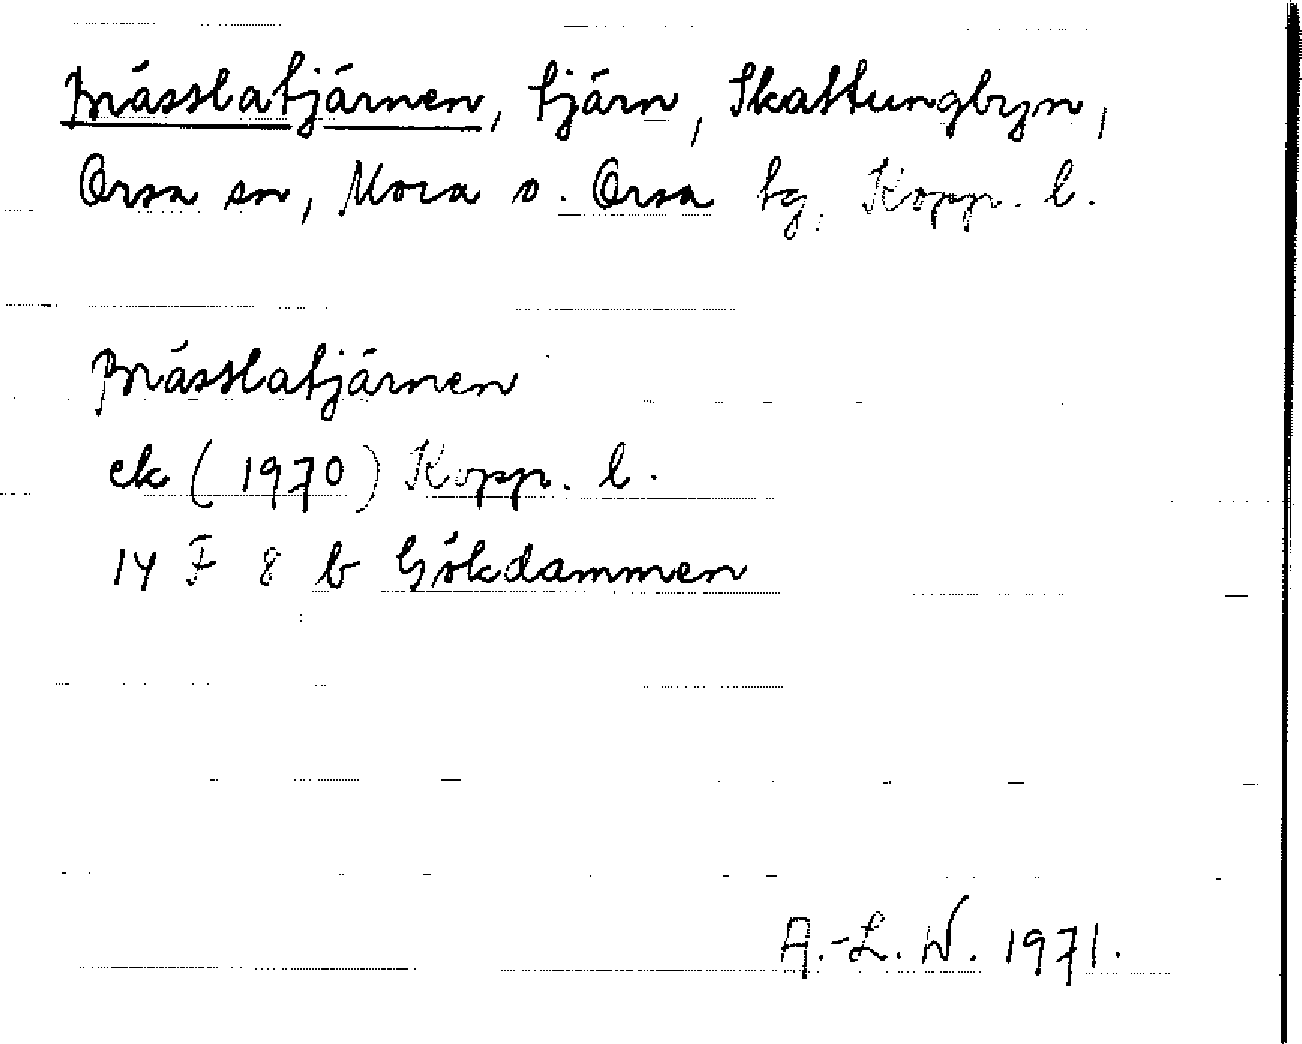 Brässlatjärnen, tjärn, Skattungbyn,
Orsa sn, Mora o. Orsa tg, Kopp. l.
Brässlatjärnen
ek (1970) Kopp. l.
14 F 8 b Gökdammen
A.-L. W. 1971.